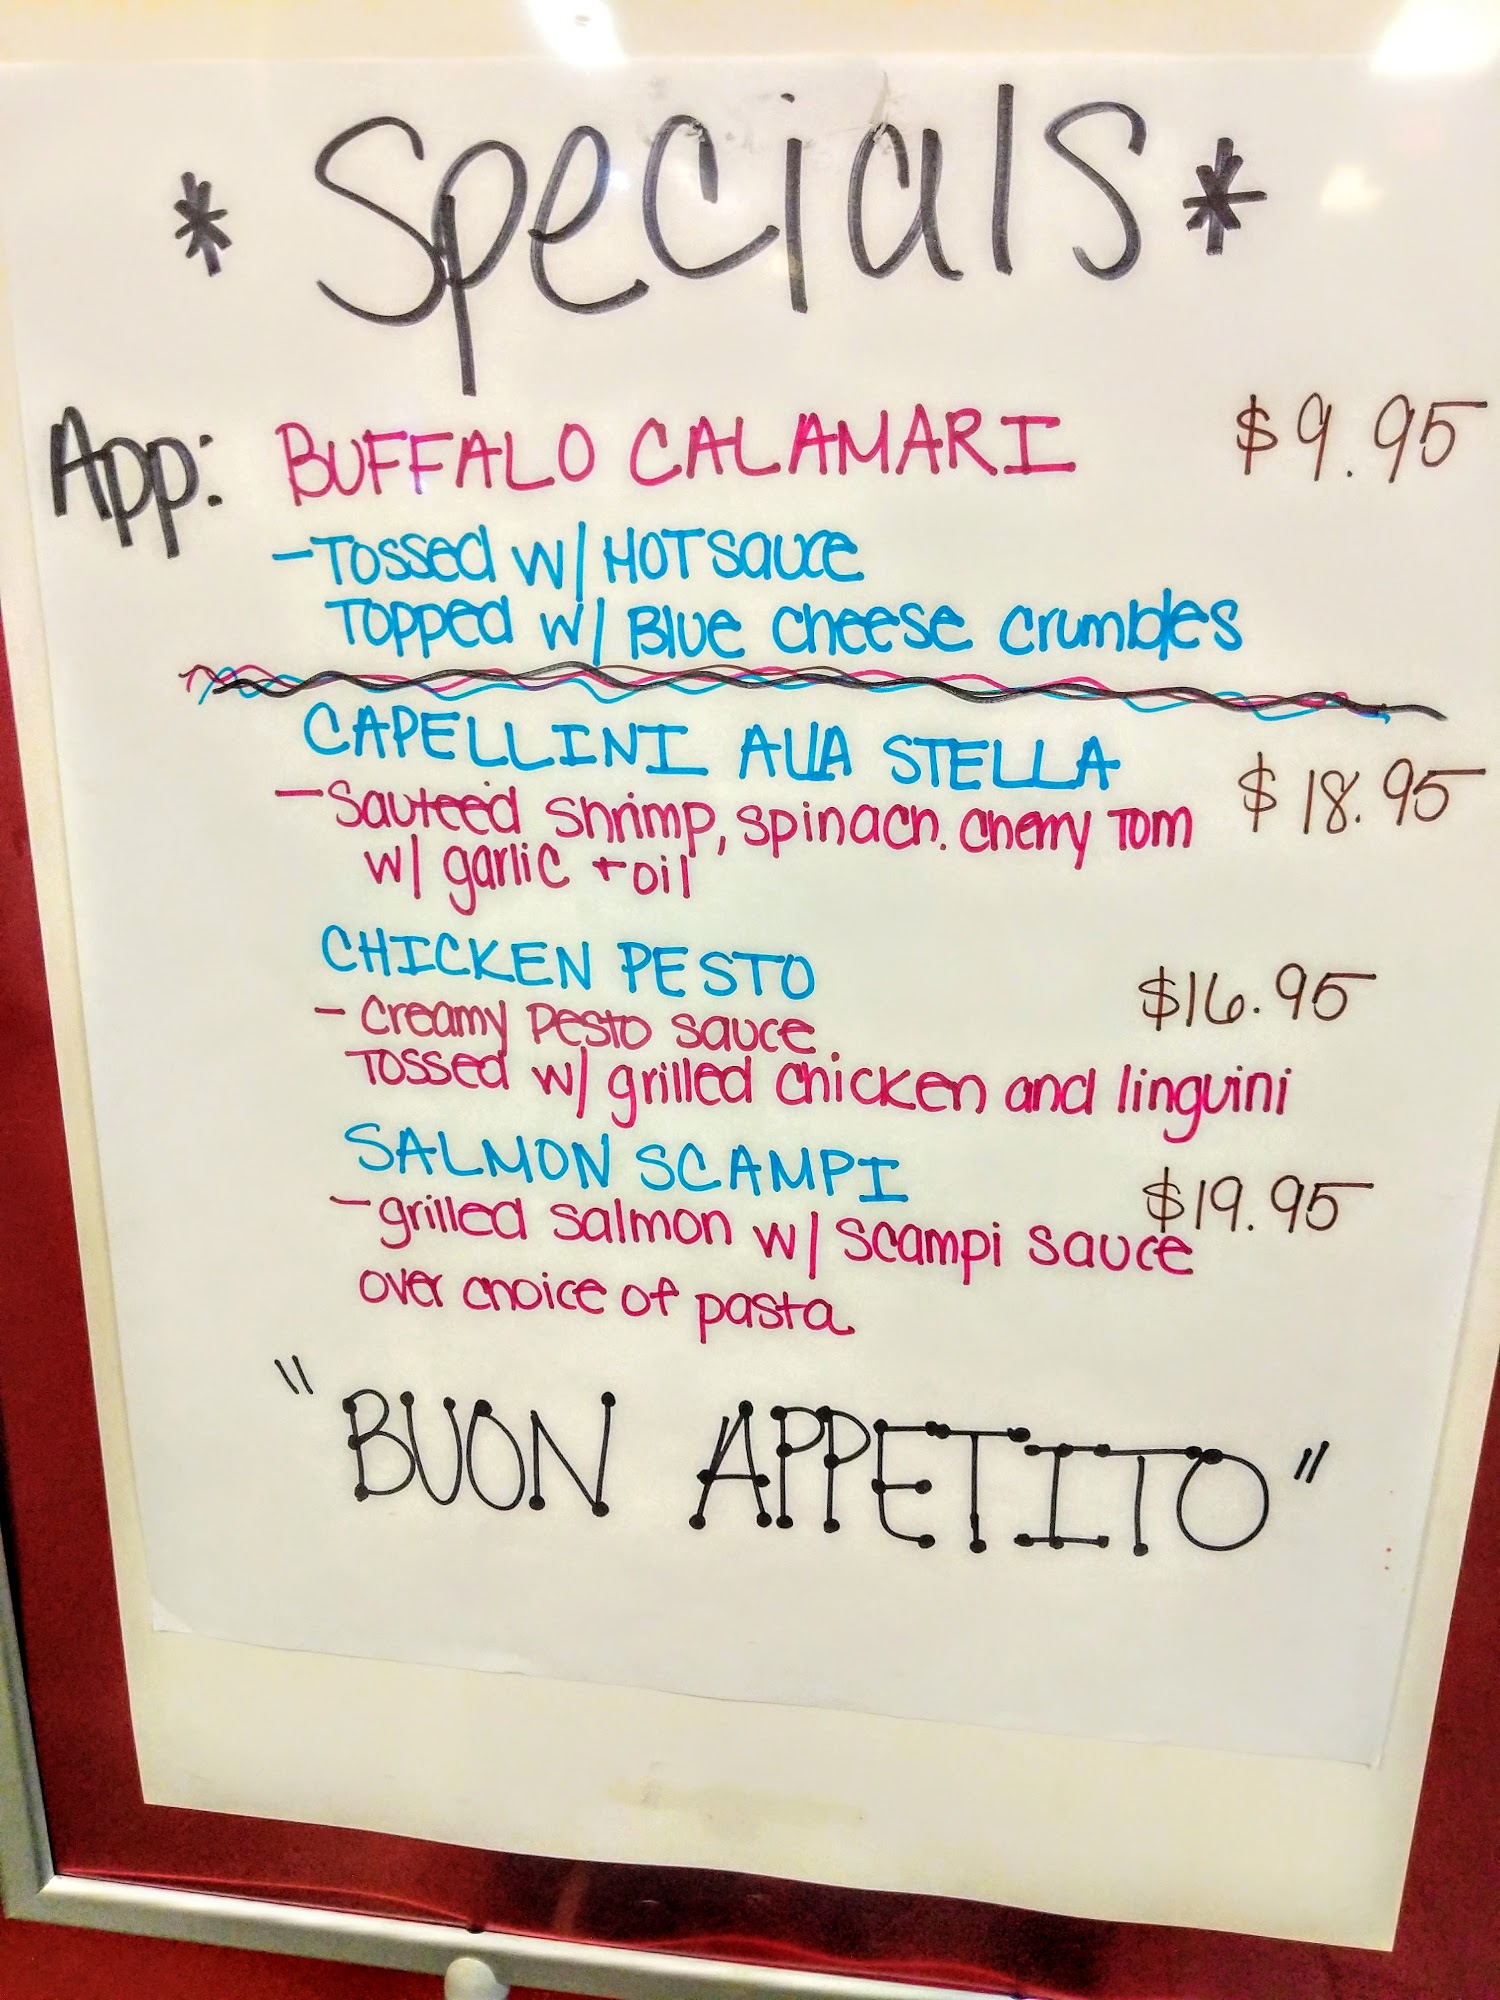 * Specials *
App: BUFFALO CALAMARI $9.95
- Tossed w/ HOT sauce
Topped w/ Blue Cheese crumbles
CAPELLINI AllA STELLA $18.95
- Sauteed shrimp, spinach. cherry Tom
w/ garlic + oil
CHICKEN PESTO $16.95
- Creamy Pesto sauce
Tossed w/ grilled chicken and linguini
SALMON SCAMPI $19.95
- grilled salmon w/ scampi sauce
over choice of pasta
"BUON APPETITO"